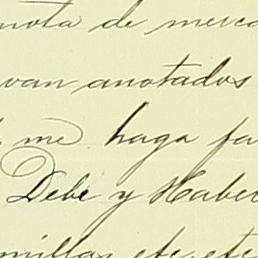 nota de merca
van anotados
me haga fa
Debe y Haber
millas etc. etc.